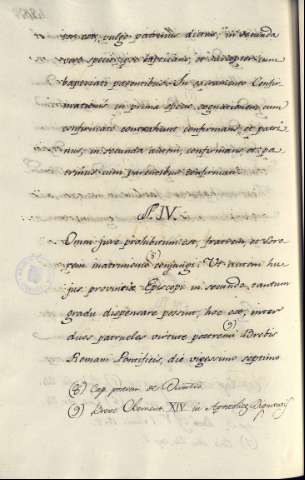 tor est, vulgo patrinus dicitur, in secunda
vero specie ipse baptizans, et susceptor cum
baptizati parentibus. In sacramento Confir-
mationis in prima specie cognationem cum
confirmato contrahunt confirmans, et patri-
nus, in secunda autem, confirmans, et pa-
trinus cum parentibus confirmati.
§. IV.
Omni jure prohibitum est, fratrem, et Soro-
rem matrimonio (8) conjungi: Ut autem hu-
jus provinciæ Episcopi in secundo tantum
gradu dispensare possint, hoc est, inter
duos patrueles virtute potestatis (9) Brebis
Romani Pontificis, die vigessimo septimo
(8) Cap. de
(9) Breve Clement. XIV. in